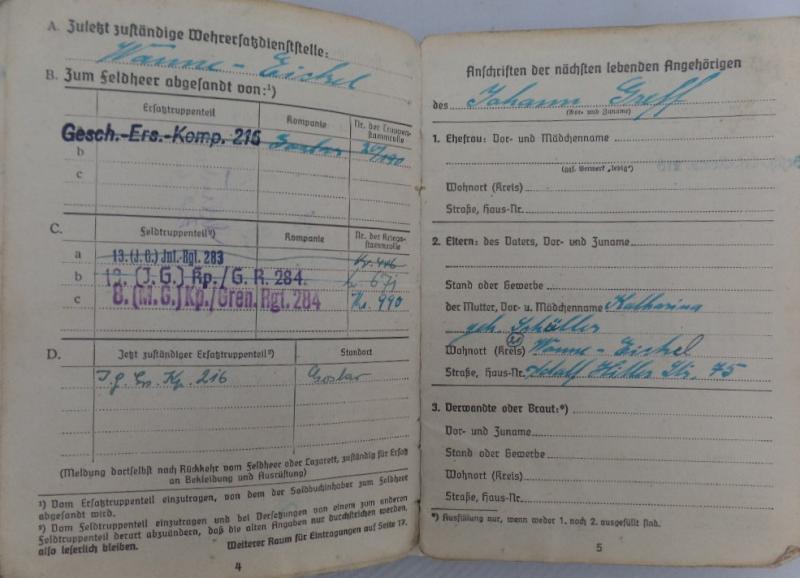 A. Zuletzt zuständige Wehrersatzdienststelle:
Wanne-Eickel
B. Zum Feldheer abgesandt von:¹)
Ersatztruppenteil
Kompanie
Nr. der Truppenstammrolle
Gesch.-Ers.-Komp. 216
Goslar
20/190
b
c
C.
Feldtruppenteil²)
Kompanie
Nr. der Kriegsstammrolle
a 13. (J. G.) Inf.-Rgl. 283
b 13. (J. G.) Kp./G. R. 284.
c 8. (M. G.) Kp./Gren. Rgt. 284
D.
Jetzt zuständiger Ersatztruppenteil²)
Standort
J. G. Ers. Kp. 216
Goslar
(Meldung dortselbst nach Rückkehr vom Feldheer oder Lazarett, zuständig für Ersatz
an Bekleidung und Ausrüstung)
¹) Vom Ersatztruppenteil einzutragen, von dem der Soldbuchinhaber zum Feldheer
abgesandt wird.
²) Vom Feldtruppenteil einzutragen und bei Versetzungen von einem zum anderen
Feldtruppenteil derart abzuändern, daß die alten Angaben nur durchstrichen werden,
also leserlich bleiben.
Weiterer Raum für Eintragungen auf Seite 17.
4
Anschriften der nächsten lebenden Angehörigen
des Johann Greff
(Vor- und Zuname)
1. Ehefrau: Vor- und Mädchenname
(ggf. Vermerk „ledig")
Wohnort (Kreis)
Straße, Haus-Nr.
2. Eltern: des Vaters, Vor- und Zuname
Stand oder Gewerbe
der Mutter, Vor- u. Mädchenname Katharina
geb. Schäller
Wohnort (Kreis) Wanne-Eickel
Straße, Haus-Nr. Adolf Hitler Str. 75
3. Verwandte oder Braut:*)
Vor- und Zuname
Stand oder Gewerbe
Wohnort (Kreis)
Straße, Haus-Nr.
*) Ausfüllung nur, wenn weder 1. noch 2. ausgefüllt sind.
5